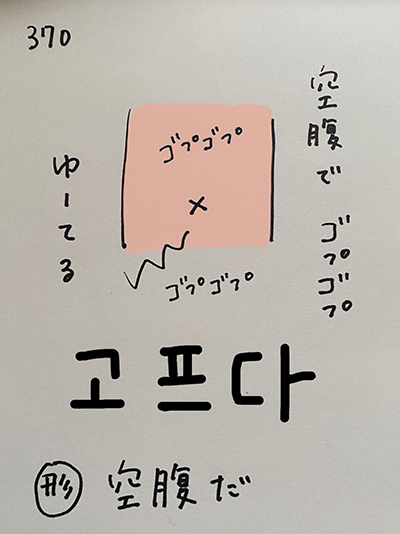 370
空腹で ゴプゴプ
ゴプゴプ
ゆーてる
ゴプゴプ
고프다
形 空腹だ